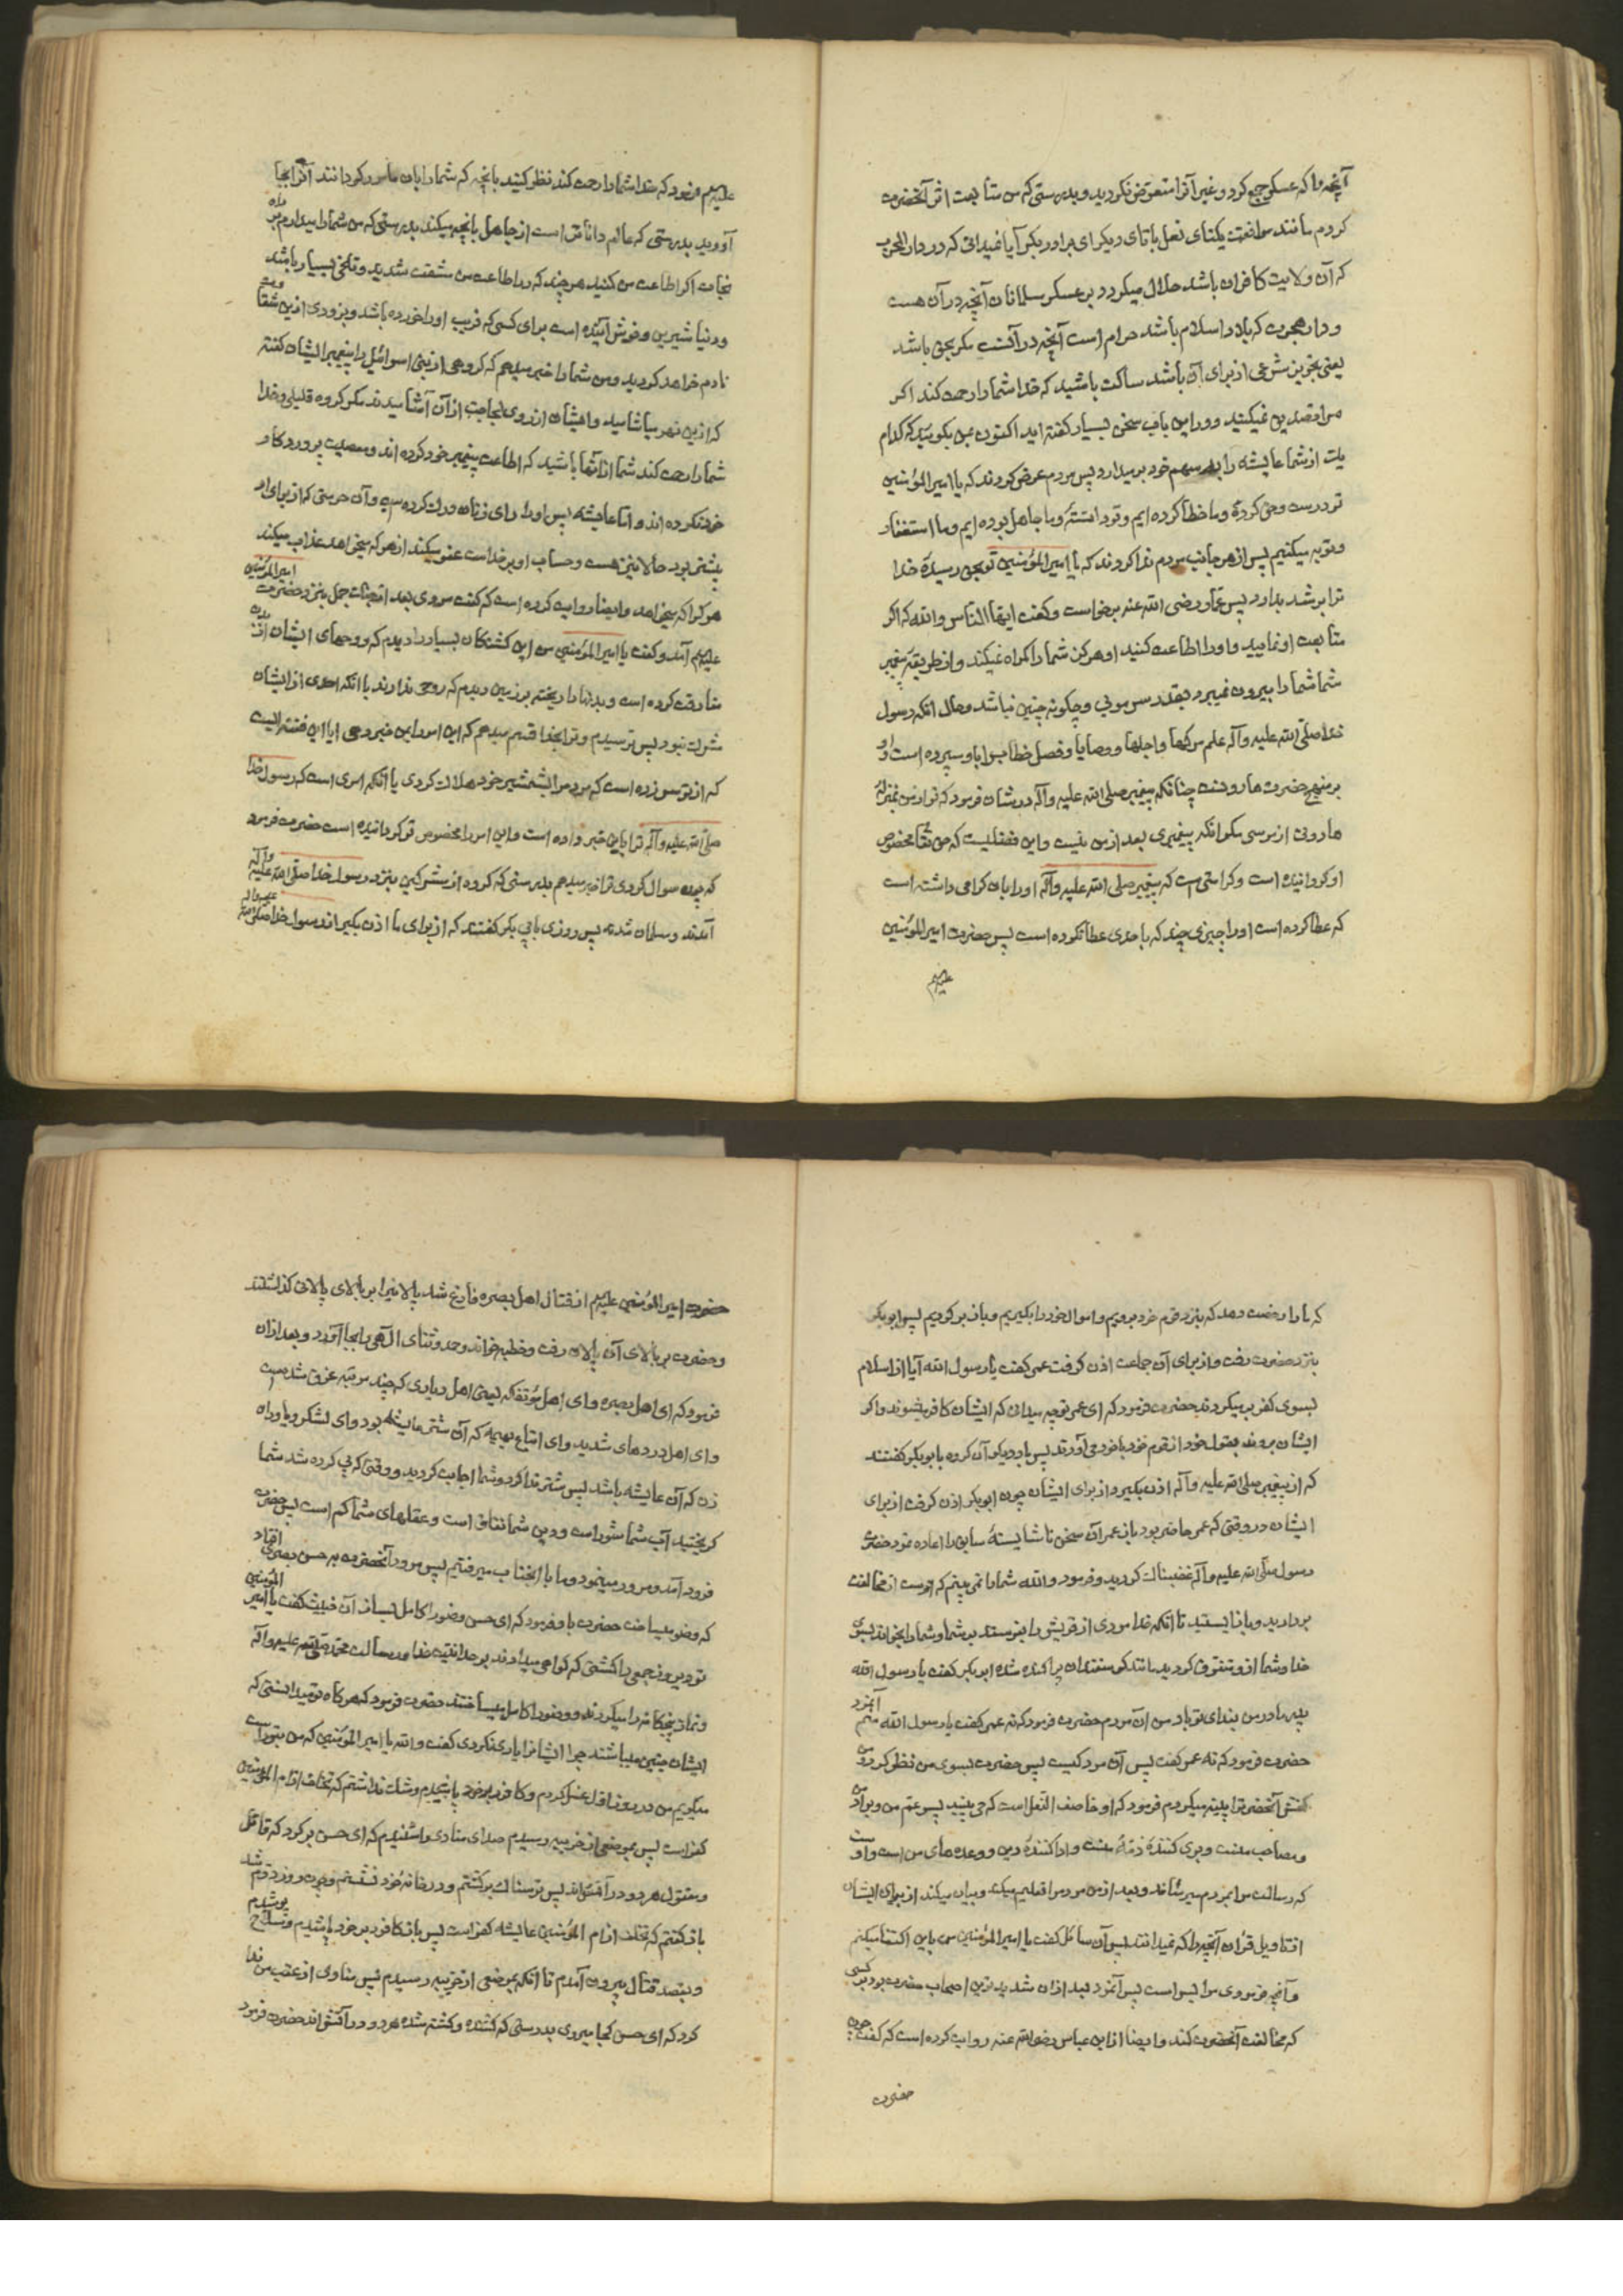 آنچه را که عسکر جمع کرد و غیر آنرا متعرّض نکردید و بدرستی که من متابعت اثر آنحضرت
کردم مانند موافقت یکتای نعل با تای دیگر ای برادر بکر آیا نمیدانی که در دار الحرب
که آن ولایت کافران باشد حلال میکردد بر عسکر مسلمانان آنچه در آن هست
و دار هجرت که بلاد اسلام باشد حرام است آنچه در آنست مکر بحق باشد
یعنی تجویز شرعی از برای آن باشد ساکت باشید که خدا شما را رحمت کند اکر
مرا تصدیق نمیکنید و در این باب سخن بسیار کفته اید اکنون بمن بکوئید که کدام
یک از شما عایشه را بسهم خود بر میدارد پس مردم عرض کردند که یا امیر المؤمنین
تو درست و حق کردهٔ و ما خطا کرده ایم و تو دانستهٔ و ما جاهل بوده ایم و ما استغفار
و توبه میکنیم پس از هر جانب مردم ندا کردند که یا امیر المؤمنین تو بحق رسیدهٔ خدا
ترا بر شد بدارد پس عمّار رضی الله عنه برخاست و کفت ایها الناس والله که اکر
متابعت او نمایید و او را اطاعت کنید او هرکز شما را کمراه نمیکند و از طریقهٔ پیغمبر
شما شما را بیرون نمیبرد بقدر سر مویی و چکونه چنین نباشد و حال آنکه رسول
خدا صلّی الله علیه وآله علم مرکها و اجلها و وصایا و فصل خطاب را باو سپرده است و او
بر منهج حضرت هارونست چنانکه پیغمبر صلی الله علیه وآله در شان او فرمود که تو از من بمنزلهٔ
هارونی از موسی مکر آنکه پیغمبری بعد از من نیست و این فضلیست که حق تعالی مخصوص
او کردانیده است و کرامتی است که پیغمبر صلی الله علیه وآله او را بآن کرامی داشته است
که عطا کرده است او را چیزی چند که باحدی عطا نکرده است پس حضرت امیر المؤمنین
علیهم
علیهم فرمود که خدا شما را رحمت کند نظر کنید بآنچه که شما را بآن مامور کردانند آنرا بجا
آورید بدرستی که عالم داناتر است از جاهل بآنچه میکند بدرستی که من شما را میدارم بر راه
نجات اکر اطاعت من کنید هر چند که در اطاعت من مشقت شدید و تلخی بسیار باشد
و دنیا شیرین و خوش آینده است برای کسی که فریب او را خورده باشد و بزودی ازین شقاوت
نادم خواهد کردید و من شما را خبر میدهم که کروهی از بنی اسرائیل را پیغمبر ایشان کفته
که ازین نهر میاشامید و ایشان از روی لجاجت از آن آشامیدند مکر کروه قلیلی و خدا
شما را رحمت کند شما از آنها باشید که اطاعت پیغمبر خود کرده اند و معصیت پروردکار
خود نکرده اند و امّا عایشه پس او را رای زنان درک کرده و آن حرمتی که از برای او
پیشتر بود حالا نیز هست و حساب او بر خداست عفو میکند از هر که میخواهد و عذاب میکند
هر کرا که میخواهد و ایضا روایت کرده است که کفت مردی بعد از جنک جمل بنزد حضرت امیر المؤمنین
علیهم آمد و کفت یا امیر المؤمنین من این کشتکان بسیار را دیدم که روحهای ایشان از بدن
مفارقت کرده است و بدنها را ریخته بر زمین دیدم که روحی ندارند با آنکه احدی از ایشان
مشرک نبود پس ترسیدم و ترا بخدا قسم میدهم که این امر را بمن خبر دهی آیا این فتنه ایست
که از تو سر زده است که مردم را بشمشیر خود هلاک کردی یا آنکه امری است که رسول خدا
صلی الله علیه وآله ترا باین خبر داده است و این امر را مخصوص تو کردانیده است حضرت فرمود
که چون سوال کردی ترا خبر میدهم بدرستی که کروه از مشرکین بنزد رسول خدا صلی الله علیه وآله
آمدند و مسلمان شدند پس روزی بابی بکر کفتند که از برای ما اذن بکیر از رسول خدا صلی الله علیه وآله
که ما را رخصت دهد که بنزد قوم خود برویم و اموال خود را بکیریم و باز بر کردیم پس ابو بکر
بنزد حضرت رفت و از برای آن جماعت اذن کرفت عمر کفت یا رسول الله آیا از اسلام
بسوی کفر بر میکردند حضرت فرمود که ای عمر تو چه میدانی که ایشان کافر میشوند و اکر
ایشان بروند بمثل خود از قوم خود با خود می آورند پس بار دیکر آن کروه بابو بکر کفتند
که از پیغمبر صلی الله علیه وآله اذن بکیر از برای ایشان چون ابو بکر اذن کرفت از برای
ایشان در وقتی که عمر حاضر بود باز عمر آن سخن ناشایستهٔ سابق را اعاده نمود حضرت
رسول صلی الله علیه وآله غضبناک کردید و فرمود والله شما را نمی بینم که دست از مخالفت
بردارید و باز ایستید تا آنکه خدا مردی از قریش را بفرستد بر شما و شما را بخواند بسوی
خدا و شما از او متفرق کردید مانند کوسفندان پراکنده شده ابو بکر کفت یا رسول الله
پدر و مادر من فدای تو باد من آن مردم حضرت فرمود که نه عمر کفت یا رسول الله آنمرد منم
حضرت فرمود که نه عمر کفت پس آن مرد کیست پس حضرت بسوی من نظر کرد و من
کفش آنحضرت را پینه میکردم فرمود که او خاصف النعل است که می بینید پسر عم من و برادر من
و صاحب منست و بری کنندهٔ ذمّهٔ منست و ادا کنندهٔ دین و وعده های من است و او است
که رسالت مرا بمردم میرساند و بعد از من مردم را تعلیم میکند و بیان میکند از برای ایشان
از تاویل قرآن آنچه را که نمیدانند پس آن سائل کفت یا امیر المؤمنین من باین اکتفا میکنم
و آنچه فرمودی مرا بس است پس آنمرد بعد ازان شدیدترین اصحاب حضرت بود بر کسی
که مخالفت آنحضرت کند و ایضا از ابن عباس رضی الله عنه روایت کرده است که کفت چون
حضرت
حضرت امیر المؤمنین علیهم از قتال اهل بصره فارغ شد پالانیرا بر بالای پالانی کذاشتند
و حضرت بر بالای آن پالان رفت و خطبه خواند و حمد و ثنای الهی را بجا آورد و بعد ازان
فرمود که ای اهل بصره و ای اهل مؤتفکه یعنی اهل دیاری که چند مرتبه غرق شده است
و ای اهل دردهای شدید و ای اتباع بهیمه که آن شتر عایشه بود و ای لشکر و یاوران
زن که آن عایشه باشد پس شتر ندا کرد و شما اجابت کردید و وقتی که پی کرده شد شما
کریختید آب شما شور است و دین شما نفاق است و عقلهای شما کم است پس حضرت
فرود آمد و مرور مینمود و ما با آنجناب میرفتیم پس مرور آنحضرت به حسن بصری افتاد
که وضو میساخت حضرت باو فرمود که ای حسن وضو را کامل بساز آن خبیث کفت یا امیر المؤمنین
تو دیروز جمعی را کشتی که کواهی میدادند بوحدانیت خدا و رسالت محمد صلی الله علیه وآله
و نماز پنجکانه را میکردند و وضو را کامل میساختند حضرت فرمود که هر کاه تو میدانستی که
ایشان چنین میباشند چرا ایشانرا یاری نکردی کفت والله یا امیر المؤمنین که من بتو راست
میکویم من در روز اول غسل کردم و کافور بر خود پاشیدم و شک نداشتم که تخلف از ام المؤمنین
کفر است پس بموضعی از خریبه رسیدم صدای منادی را شنیدم که ای حسن بر کرد که قاتل
و مقتول هر دو در آتش اند پس ترسناک بر کشتم و در خانهٔ خود نشستم و چون روز دوم شد
باز کفتم که تخلف از ام المؤمنین عایشه کفر است پس باز کافور بر خود پاشیدم و سلاح پوشیدم
و بقصد قتال بیرون آمدم تا آنکه بموضعی از خریبه رسیدم پس منادی از عقب من ندا
کرد که ای حسن کجا میروی بدرستی که کشنده و کشته شده هر دو در آتش اند حضرت فرمود